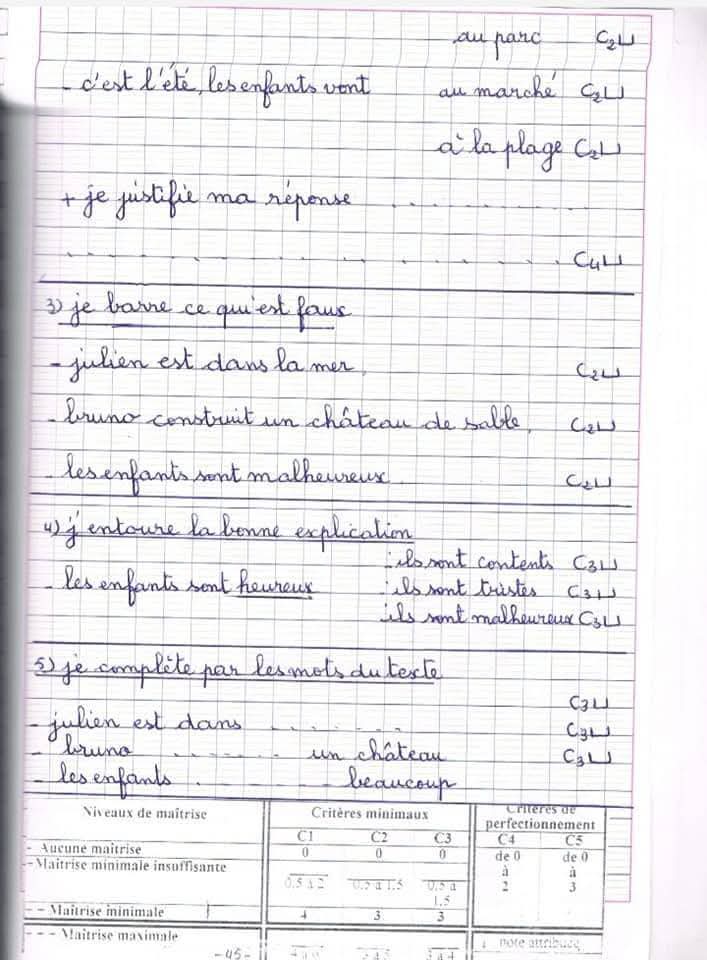 au parc C2⊔
- c'est l'été, les enfants vont au marché C2⊔
à la plage C2⊔
+ je justifie ma réponse . . . . . . . . . .
. . . . . . . . . . . . . . . C4⊔
3) je barre ce qu'est faux
- julien est dans la mer. C2⊔
- bruno construit un château de sable. C2⊔
- les enfants sont malheureux C2⊔
4) j'entoure la bonne explication
: ils sont contents C3⊔
- les enfants sont heureux : ils sont tristes C3⊔
: ils sont malheureux C3⊔
5) je complète par les mots du texte
C3⊔
- julien est dans . . . . . . . C3⊔
- bruno . . . . . . . un château C3⊔
- les enfants . . . . . . . beaucoup
Niveaux de maîtrise Critères minimaux Critères de perfectionnement
C1 C2 C3 C4 C5
- Aucune maîtrise 0 0 0 de 0 à 2 de 0 à 3
- - Maîtrise minimale insuffisante 0.5 à 2 0.5 à 1.5 0.5 à 1.5
- - Maîtrise minimale 4 3 3
- - - Maîtrise maximale note attribuée
-45-